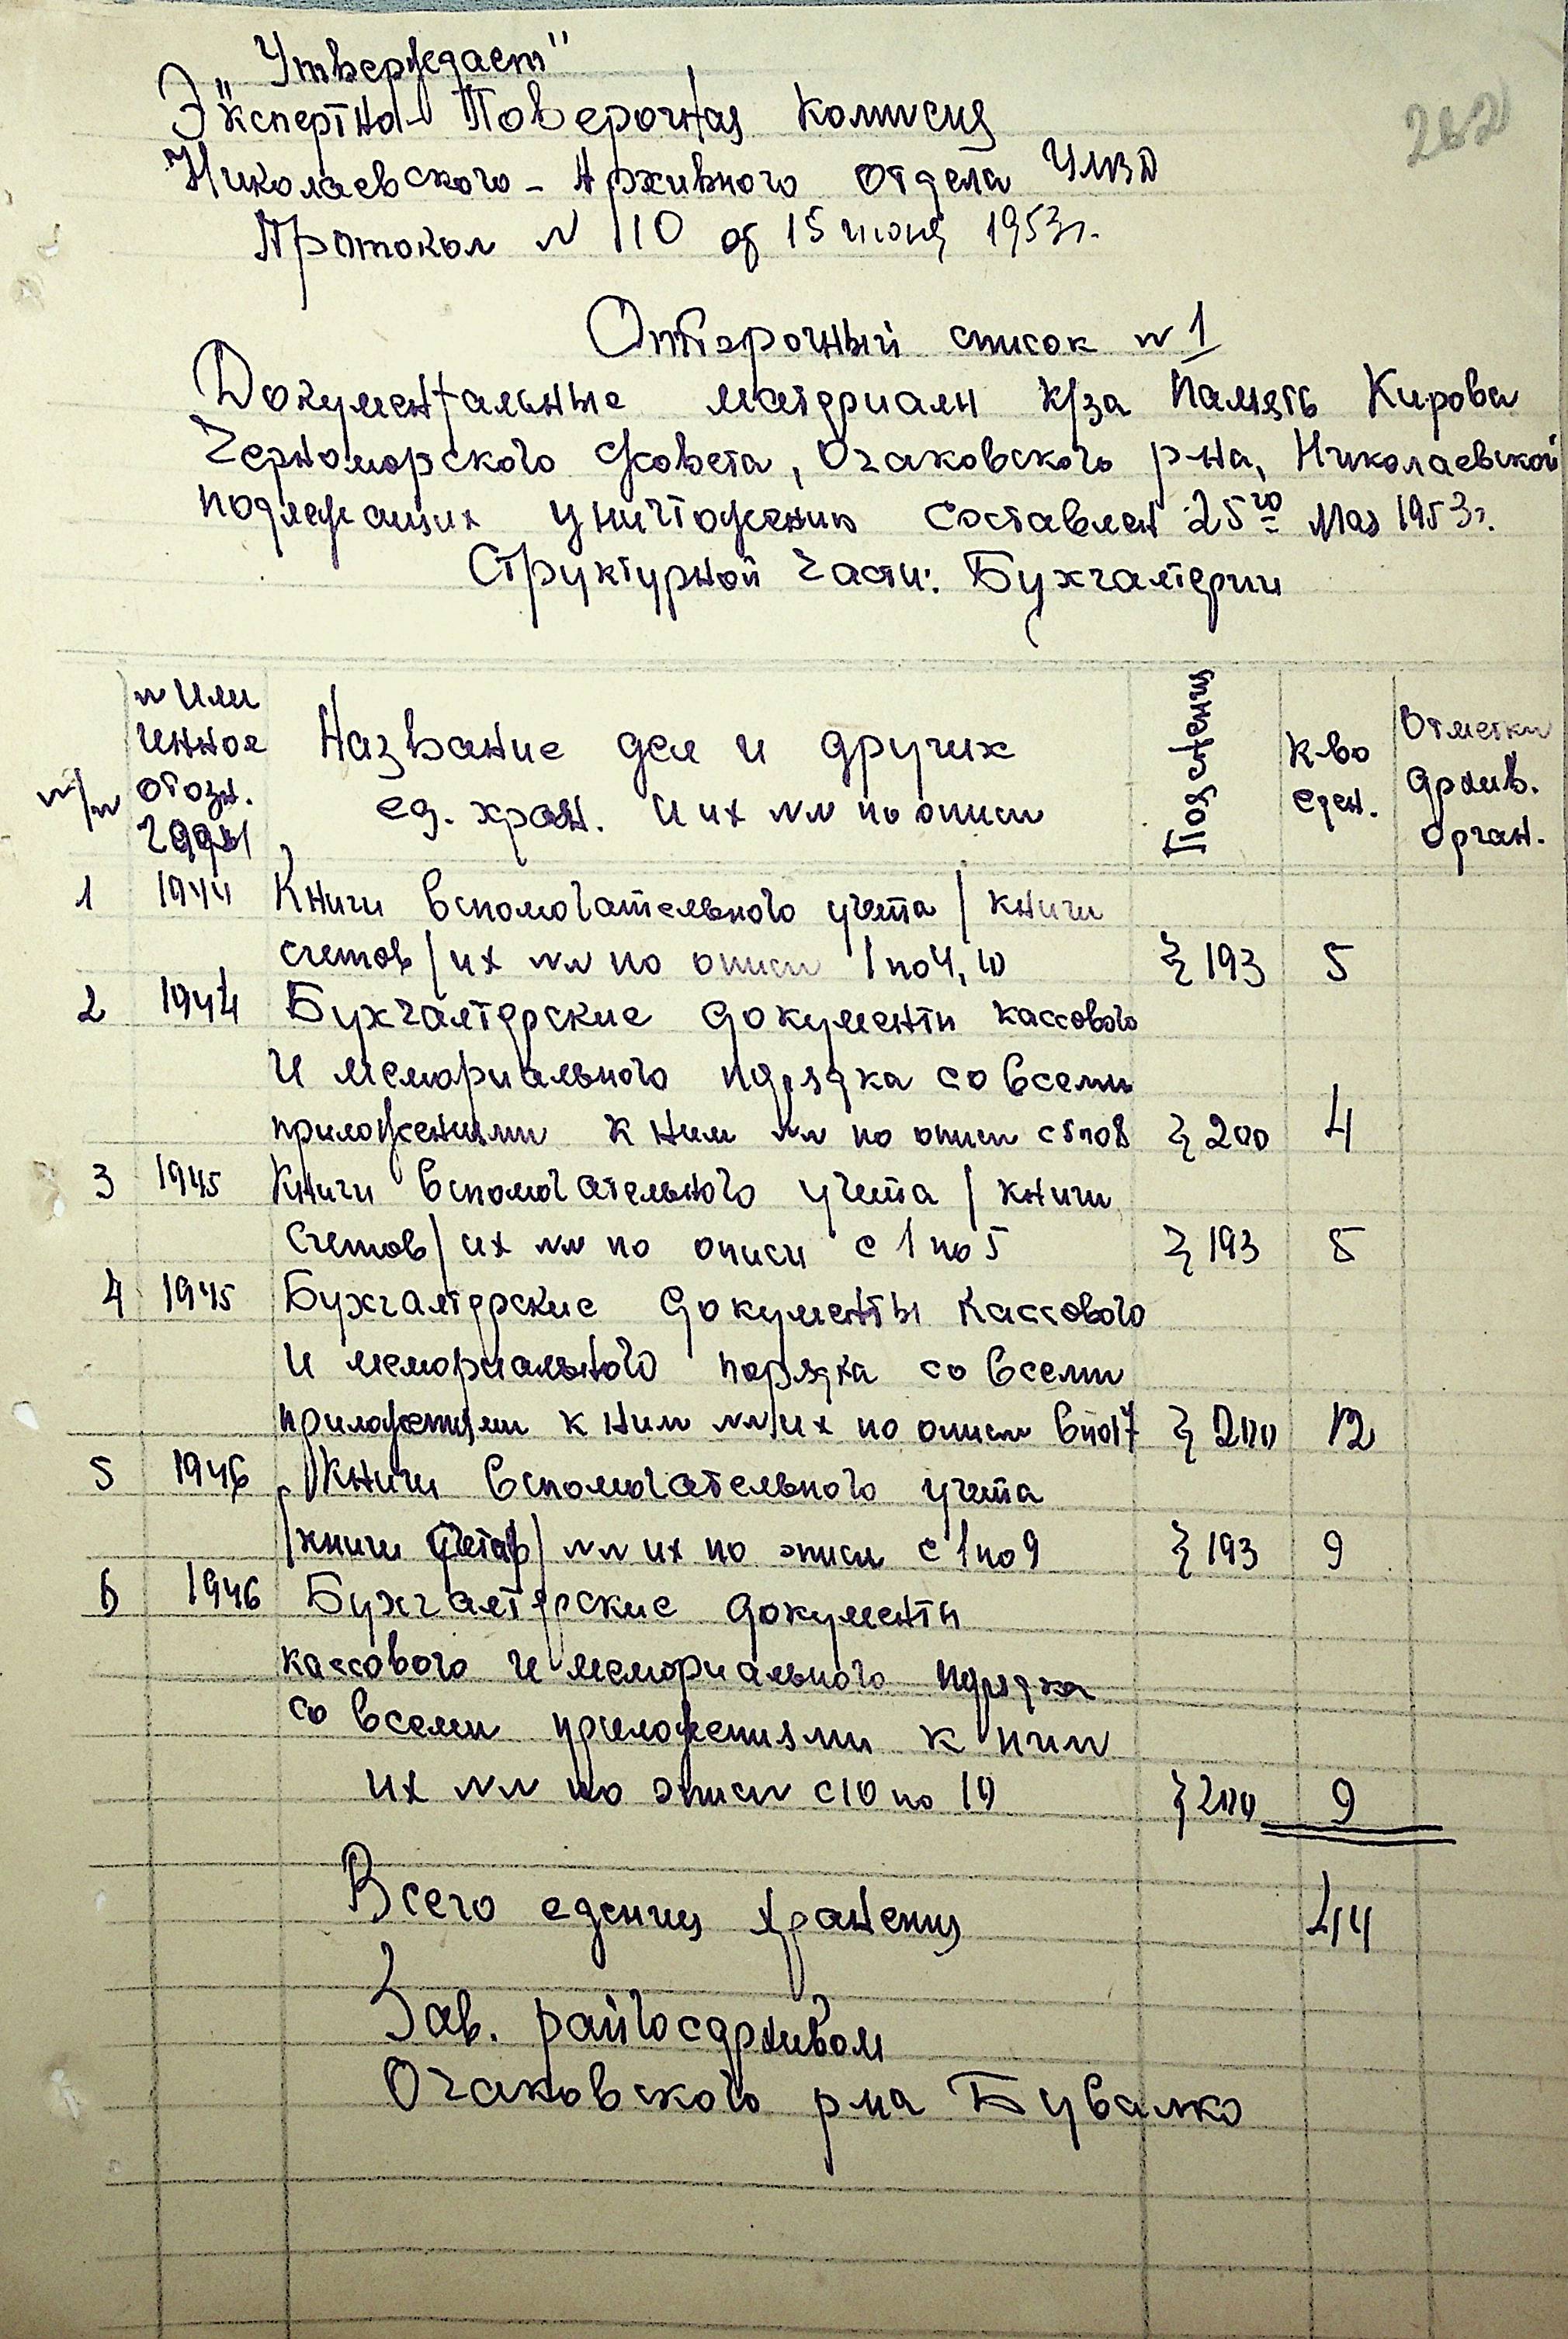 „Утверждает"
Экспертно-Поверочная комисия
Николаевского-Архивного отдела УМВД
Протокол № 110 от 15 июня 1953г.
Отберочный список № 1
Документальные материалы к/за Память Кирова
Черноморского с/совета, Очаковского р-на, Николаевской
подлежащих уничтожению составлен 25го мая 1953г.
Структурной части: Бухгалтерии
№/№
№ или
инное
обозн.
годы
Название дел и других
ед. хран. и их №№ по описи
Пояснения
К-во
еден.
Отметки
архив.
орган.
1 1944 Книги вспомогательного учета / книги
счетов / их №№ по описи 1 по 4, 10 } 193 5
2 1944 Бухгалтерские документы кассового
и мемориального порядка со всеми
приложениями к ним №№ по описи с 5 по 8 } 200 4
3 1945 Книги вспомогательного учета / книги
счетов / их №№ по описи с 1 по 5 } 193 5
4 1945 Бухгалтерские документы кассового
и мемориального порядка со всеми
приложениями к ним №№ их по описи 6 по 17 } 200 12
5 1946 Книги вспомогательного учета
/книги счетов/ №№ их по описи с 1 по 9 } 193 9
6 1946 Бухгалтерские документы
кассового и мемориального порядка
со всеми приложениями к ним
их №№ по описи с 10 по 19 } 200 9
Всего едениц хранения 44
Зав. райгосархивом
Очаковского р-на Бувалко